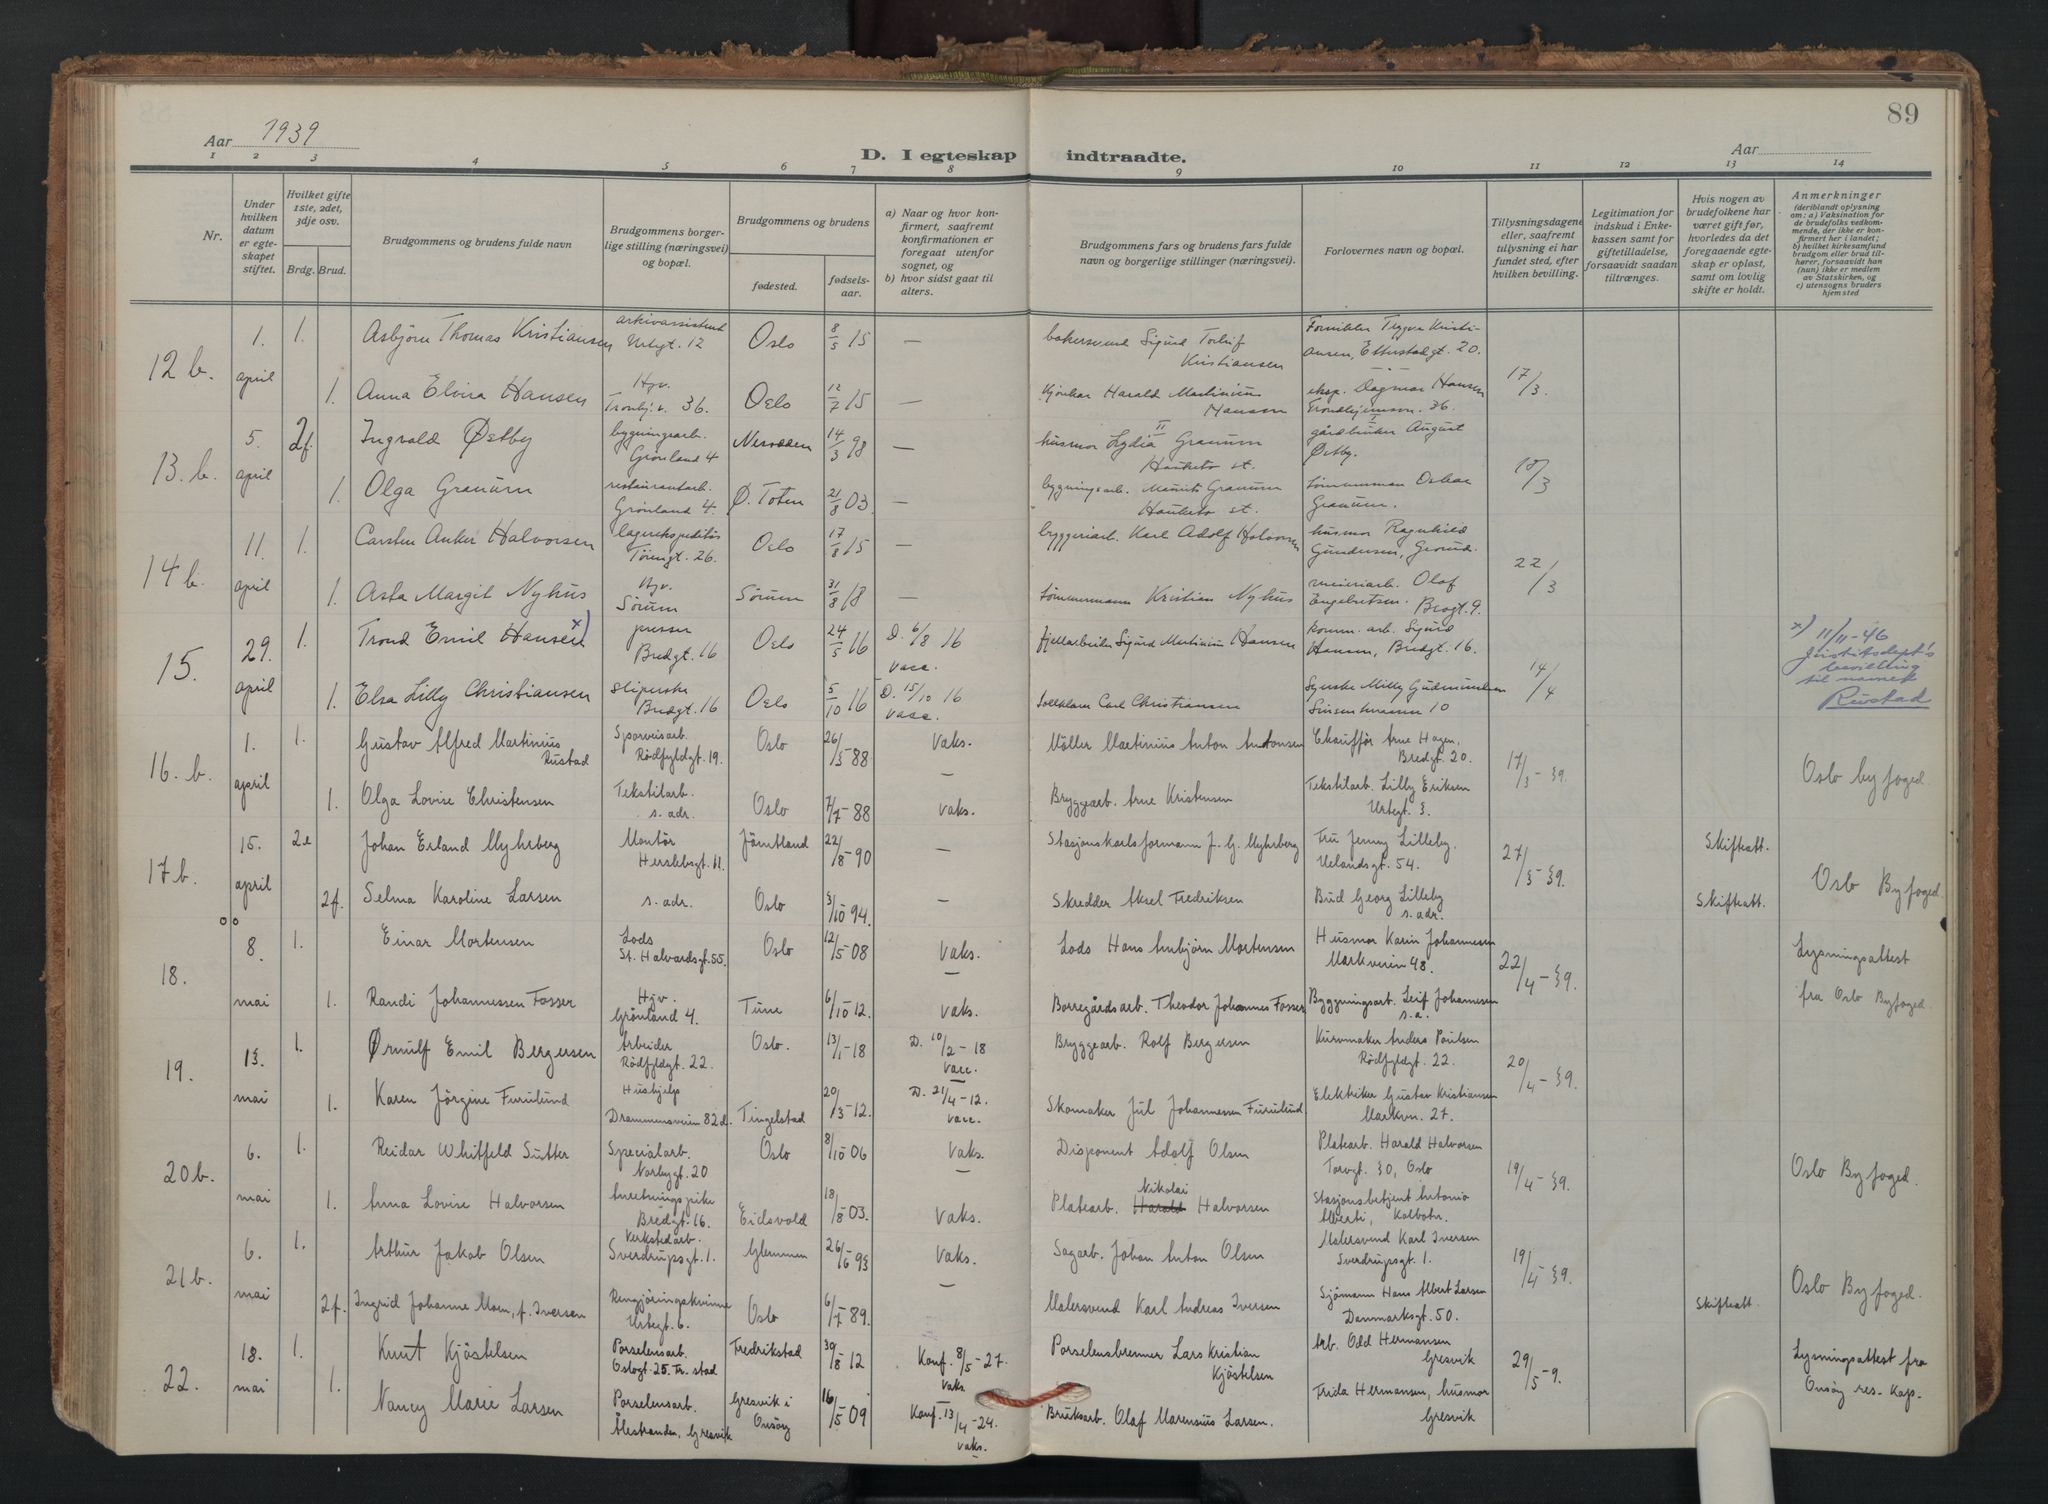 89
Aar 1939
D. I egteskap indtraadte.
Aar
1 2 3 4 5 6 7 8 9 10 11 12 13 14
Nr.
Under hvilken datum er egteskapet stiftet.
Hvilket gifte 1ste, 2det, 3dje osv.
Brdg. Brud.
Brudgommens og brudens fulde navn
Brudgommens borgerlige stilling (næringsvei) og bopæl.
Brudgommens og brudens
fødested.
fødselsaar.
a) Naar og hvor konfirmert, saafremt konfirmationen er foregaat utenfor sognet, og
b) hvor sidst gaat til alters.
Brudgommens fars og brudens fars fulde navn og borgerlige stillinger (næringsvei).
Forlovernes navn og bopæl.
Tillysningsdagene eller, saafremt tillysning ei har fundet sted, efter hvilken bevilling.
Legitimation for indskud i Enkekassen samt for giftetilladelse, forsaavidt saadan tiltrænges.
Hvis nogen av brudefolkene har været gift før, hvorledes da det foregaaende egteskap er opløst, samt om lovlig skifte er holdt.
Anmerkninger
(deriblandt oplysning om: a) Vaksination for de brudefolks vedkommende, der ikke er konfirmert her i landet; b) hvilket kirkesamfund brudgom eller brud tilhører, forsaavidt han (hun) ikke er medlem av Statskirken, og c) utensogns bruders hjemsted
12 b. 1. april 1. Asbjörn Thomas Kristiansen arkivassistent Urtegt. 12 Oslo 8/5 15 — bakersvend Sigurd Torleif Kristiansen Kristiansen, Etterstadgt. 20. 17/3
1. Anna Elvira Hansen Hjv. Trondhj.v. 36. Oslo 12/7 15 — Harald Martinius Hansen eksp. Dagmar Hansen Trondhjemsvn. 36.
13. b. 5. april 2f. Ingvald Østby bygningsarb. Grönland 4 Nesodden 14/3 98 — II husmor Lydia Granum Hauketo st. I gårdbruker August Østby. 18/3
1. Olga Granum restaurantarb. Grönland 4. Ø. Toten 21/8 03. — bygningsarb. Granum Hauketo st. tömmerman Oskar Granum.
14 b. 11. april 1. Carsten Anker Halvorsen lagerekspeditör Töiengt. 26. Oslo 17/8 15 — bryggeriarb. Karl Adolf Halvorsen husmor Ragnhild Gundersen, Grorud. 22/3
1. Asta Margit Nyhus Hjv. Sörum Sörum 31/8 18 — tömmermann Kristian Nyhus meieriarb. Olaf Engebretsen. Brogt. 9.
15. 29. april 1. Trond Emil Hansen x) presser Bredgt. 16 Oslo 24/5 16 D. 6/8 16 vacc. fjellarbeider Sigurd Martinius Hansen komm. arb. Sigurd Hansen, Bredgt. 16. 14/4
x) 11/11-46 Justitsdept's bevilling til navnet Rustad
1. Elsa Lilly Christiansen sliperske Bredgt. 16 Oslo 5/10 16 D. 15/10 16 vacc. Carl Christiansen Syerske Milly Gudmundsen Sinsenterassen 10
16. b. 1. april 1. Gustav Alfred Martinius Rustad Sporveisarb. Rödfyldgt. 19. Oslo 26/3-88 vaks. — Möller Martinius Anton Antonsen Chauffør Arne Hagen, Bredgt. 20. 17/3-39. Oslo byfoged.
1. Olga Lovise Christensen Tekstilarb. s. adr. Oslo 7/7-88 vaks. Bryggearb. Arne Kristensen Tekstilarb. Lilly Eriksen Urtegt. 3.
17 b. 15. april 2e Johan Erland Myhrberg Montör Herslebsgt. 11. Jämtland 22/8-90 — Stasjonskarlsformann J. G. Myhrberg Fru Jenny Lilleby. Uelandsgt. 54. 27/3-39. Skifteatt. Oslo Byfoged.
2f. Selma Karoline Larsen s. adr. Oslo 3/10 94. — Skredder Aksel Fredriksen Bud Georg Lilleby s. adr. Skifteatt.
18. 8. mai 1. Einar Mortensen Lods St. Halvardsgt. 55. Oslo 12/5 08 vaks. — Lods Hans Arnbjörn Mortensen Husmor Karin Johannessen Markveien 48. 22/4-39. Lysningsattest fra Oslo Byfoged.
1. Randi Johannessen Fosser Hjv. Grönland 4. Tune 6/10 12. vaks. Borregårdsarb. Theodor Johannes Fosser Byggningsarb. Leif Johannesen s.a.
19. 13. mai 1. Ørnulf Emil Bergersen Arbeider Rödfyldgt. 22. Oslo. 13/1-18 D. 10/2-18 vacc. Bryggearb. Rolf Bergersen Kurvmaker Anders Paulsen Rödfyldgt. 22. 20/4-39.
1. Karen Jörgine Furulund Hushjelp Drammensveien 82d. Tingelstad 20/3-12. D. 21/4-12. vacc. Skomaker Jul Johannessen Furulund Elektriker Gustav Kristiansen Markvn. 27.
20 b. 6. mai 1. Reidar Whitfeld Sutter Specialarb. Norbygt. 20 Oslo 8/10 06 vaks. — Disponent Adolf Olsen Platearb. Harald Halvorsen Torvgt. 30, Oslo 19/4-39. Oslo Byfoged.
1. Anna Lovise Halvorsen Anretningspike Bredgt. 16. Eidsvold 18/8 03. vaks. Platearb. Harald Nikolai Halvorsen Stasjonsbetjent Antonio Alberti, Kolbotn.
21 b. 6. mai 1. Arthur Jakob Olsen Verkstedarb. Sverdrupsgt. 1. Glemmen 26/6 93 vaks. — Sagarb. Johan Anton Olsen Malersvend Karl Iversen Sverdrupsgt. 1. 19/4-39. Oslo Byfoged.
2f. Ingrid Johanne Moen, f. Iversen Rengjöringskvinne Urtegt. 6. Oslo 6/7-89. Malersvend Karl Andreas Iversen Sjömann Hans Albert Larsen Danmarksgt. 50. Skifteatt.
22. 18. mai 1. Knut Kjöstelsen Porselensarb. Oslogt. 25. Fr. stad Fredrikstad 30/8 12 Konf. 8/5-27. vaks. Porselensbrenner Lars Kristian Kjöstelsen Arb. Odd Hermansen Gresvik 29/5-9. Lysningsattest fra Onsöy res. kap.
1. Nancy Marie Larsen Porselensarb. Ålestranden, Gresvik Gresvik i Onsöy 16/5 09 Konf. 13/4-24. vaks. Bruksarb. Olaf Marensius Larsen. Frida Hermansen, husmor Gresvik